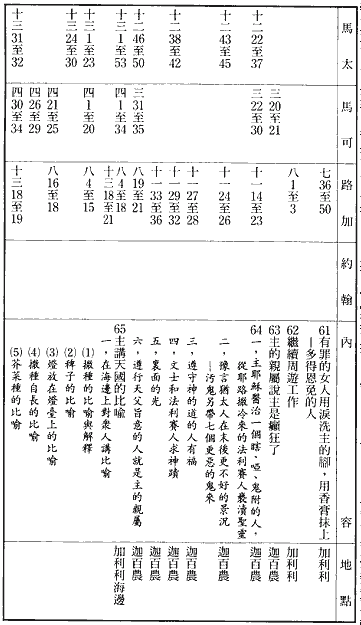 馬太 馬可 路加 約翰 內容 地點
七36至50 61有罪的女人用淚洗主的腳，用香膏抹上 加利利
—多得恩免的人
八1至3 62繼續周遊工作 加利利
三20至21 63主的親屬說主是癲狂了 迦百農
十二22至37 三22至30 十一14至23 64一，主耶穌醫治一個瞎、啞、鬼附的人， 迦百農
從耶路撒冷來的法利賽人褻瀆聖靈
十二43至45 十一24至26 二，豫言猶太人在末後更不好的景況 迦百農
—污鬼另帶七個更惡的鬼來
十一27至28 三，遵守神的道的人有福 迦百農
十二38至42 十一29至32 四，文士和法利賽人求神蹟 迦百農
十一33至36 五，裏面的光 迦百農
十二46至50 三31至35 八19至21 六，遵行天父旨意的人就是主的親屬 迦百農
十三1至53 四1至34 八4至18 65主講天國的比喻 加利利海邊
十三18至21 一，在海邊上對衆人講比喻
十三1至23 四1至20 八4至15 (1)撒種的比喻與解釋
十三24至30 (2)稗子的比喻
四21至25 八16至18 (3)燈放在燈臺上的比喻
四26至29 (4)撒種自長的比喻
十三31至32 四30至34 十三18至19 (5)芥菜種的比喻